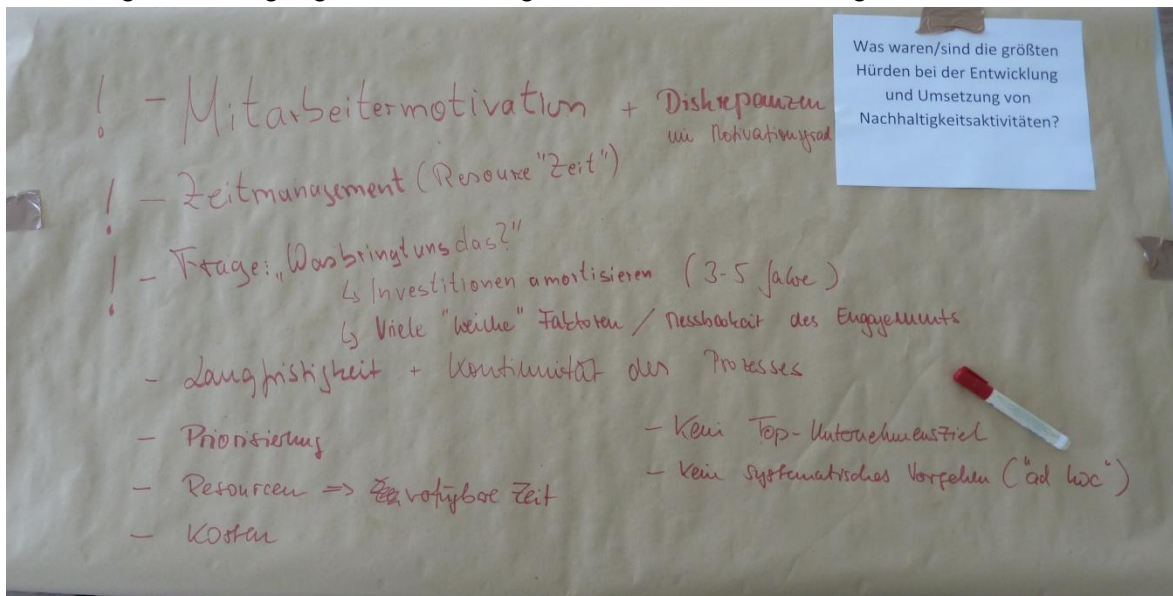 Was waren/sind die größten
Hürden bei der Entwicklung
und Umsetzung von
Nachhaltigkeitsaktivitäten?
! - Mitarbeitermotivation + Diskrepanzen
im Motivationsgrad
! - Zeitmanagement (Resource "Zeit")
! - Frage: „Was bringt uns das?"
↳ Investitionen amortisieren (3-5 Jahre)
↳ Viele "weiche" Faktoren / Messbarkeit des Engagements
- Langfristigkeit + Kontinuität des Prozesses
- Priorisierung
- Resourcen => verfügbare Zeit
- Kosten
- Kein Top-Unternehmensziel
- Kein systematisches Vorgehen ("ad hoc")